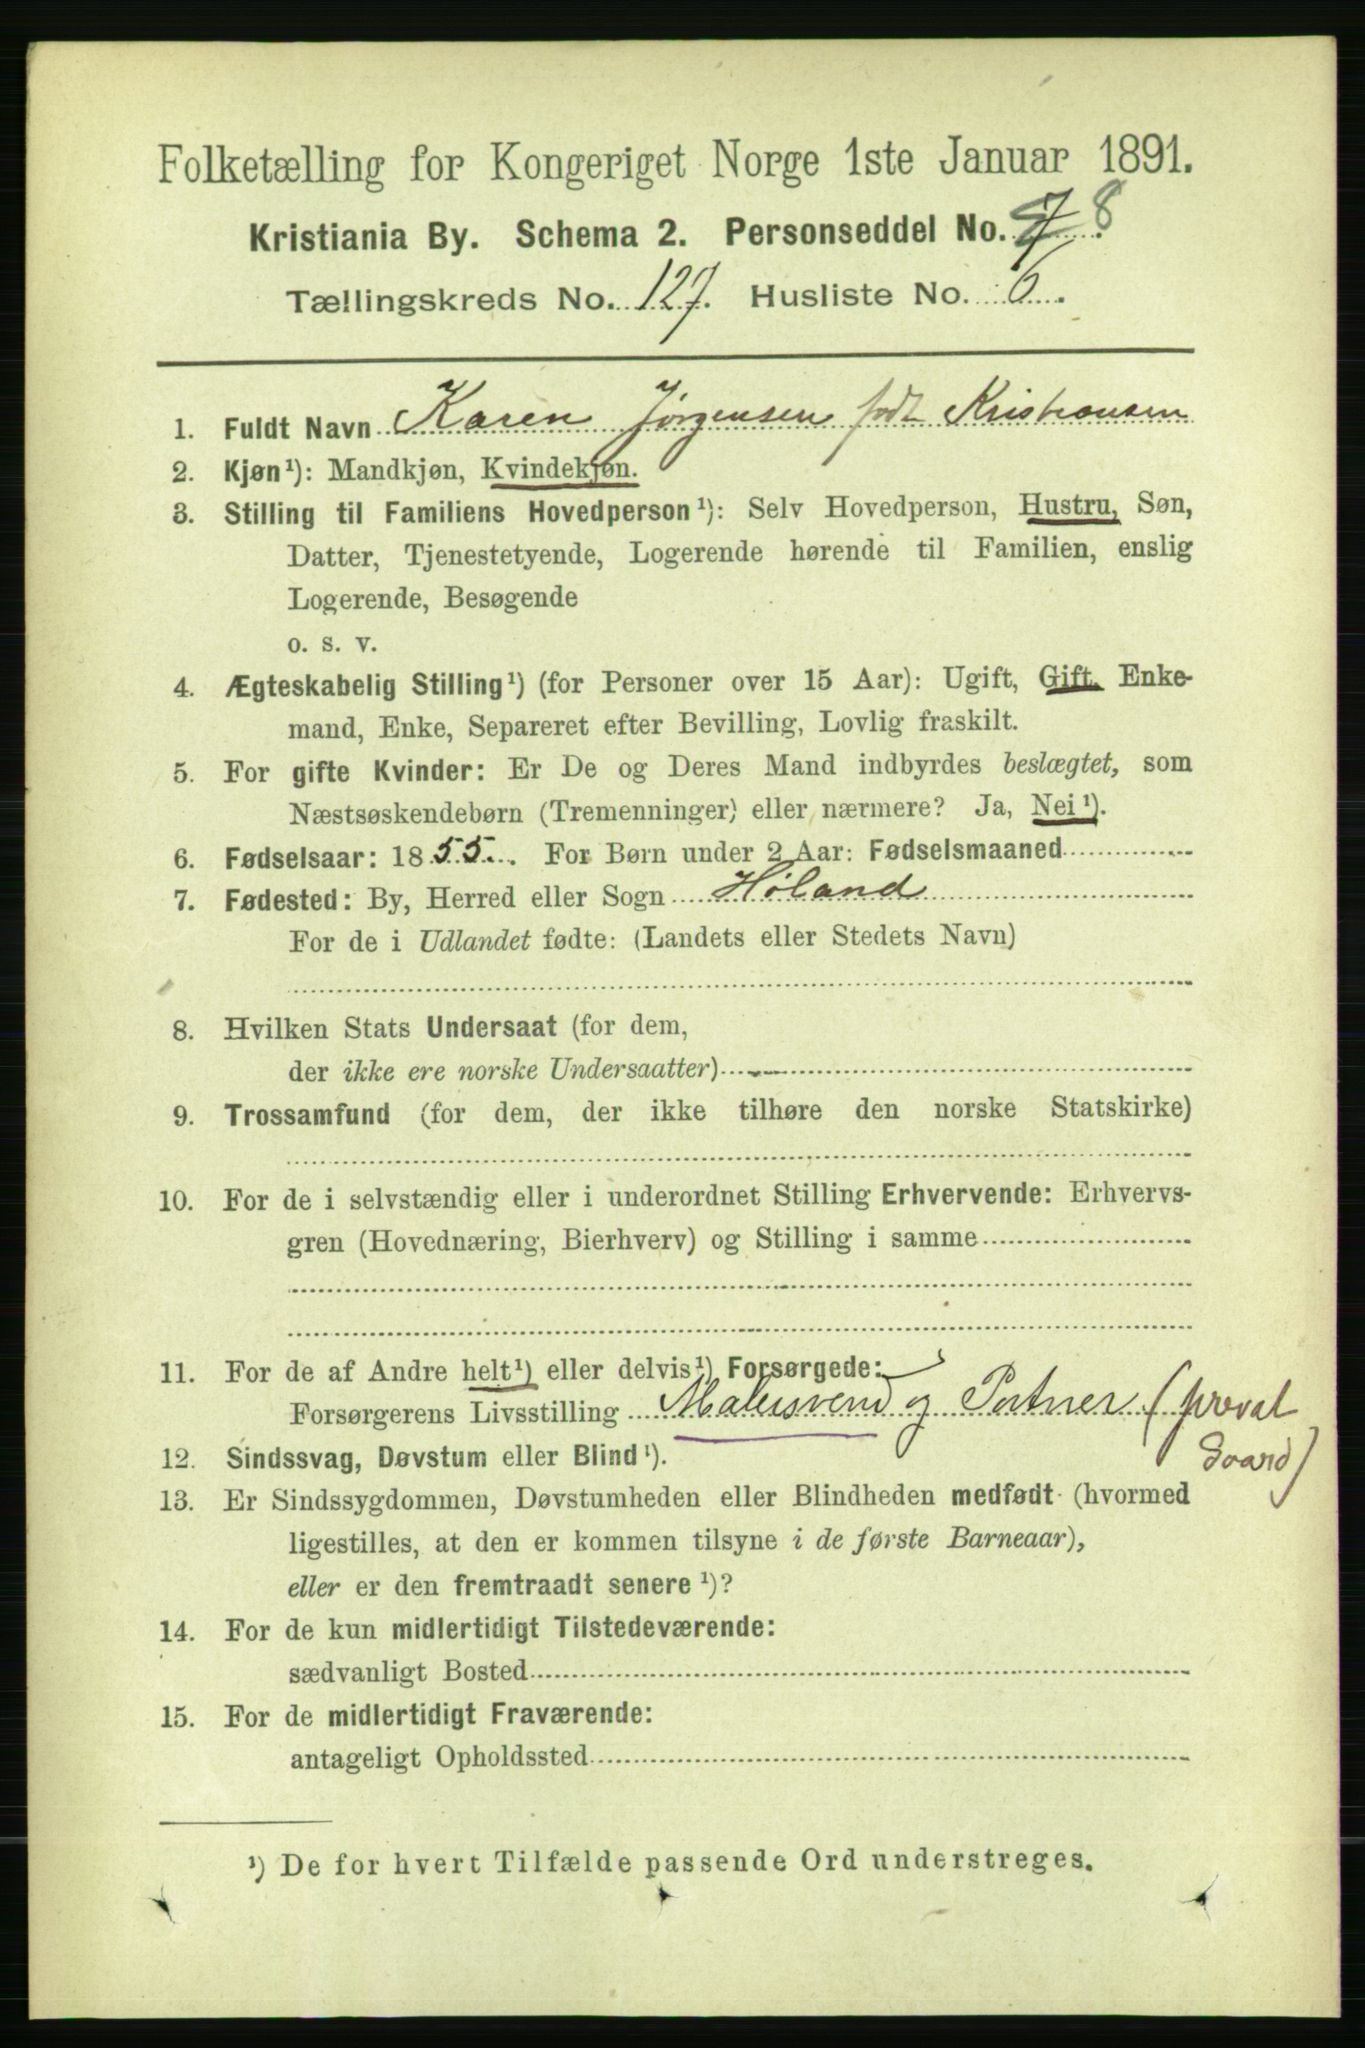 Folketælling for Kongeriget Norge 1ste Januar 1891.
Kristiania By. Schema 2. Personseddel No. 8
Tællingskreds No. 127. Husliste No. 6.
1. Fuldt Navn Karen Jørgensen født Kristiansen
2. Kjøn¹): Mandkjøn, Kvindekjøn.
3. Stilling til Familiens Hovedperson¹): Selv Hovedperson, Hustru, Søn,
Datter, Tjenestetyende, Logerende hørende til Familien, enslig
Logerende, Besøgende
o. s. v.
4. Ægteskabelig Stilling¹) (for Personer over 15 Aar): Ugift, Gift, Enke-
mand, Enke, Separeret efter Bevilling, Lovlig fraskilt.
5. For gifte Kvinder: Er De og Deres Mand indbyrdes beslægtet, som
Næstsøskendebørn (Tremenninger) eller nærmere? Ja, Nei¹).
6. Fødselsaar: 1855. For Børn under 2 Aar: Fødselsmaaned
7. Fødested: By, Herred eller Sogn Høland
For de i Udlandet fødte: (Landets eller Stedets Navn)
8. Hvilken Stats Undersaat (for dem,
der ikke ere norske Undersaatter)
9. Trossamfund (for dem, der ikke tilhøre den norske Statskirke)
10. For de i selvstændig eller i underordnet Stilling Erhvervende: Erhvervs-
gren (Hovednæring, Bierhverv) og Stilling i samme
11. For de af Andre helt¹) eller delvis¹) Forsørgede:
Forsørgerens Livsstilling Malersvend og Portner (preval
Gaard)
12. Sindssvag, Døvstum eller Blind¹).
13. Er Sindssygdommen, Døvstumheden eller Blindheden medfødt (hvormed
ligestilles, at den er kommen tilsyne i de første Barneaar),
eller er den fremtraadt senere¹)?
14. For de kun midlertidigt Tilstedeværende:
sædvanligt Bosted
15. For de midlertidigt Fraværende:
antageligt Opholdssted
¹) De for hvert Tilfælde passende Ord understreges.